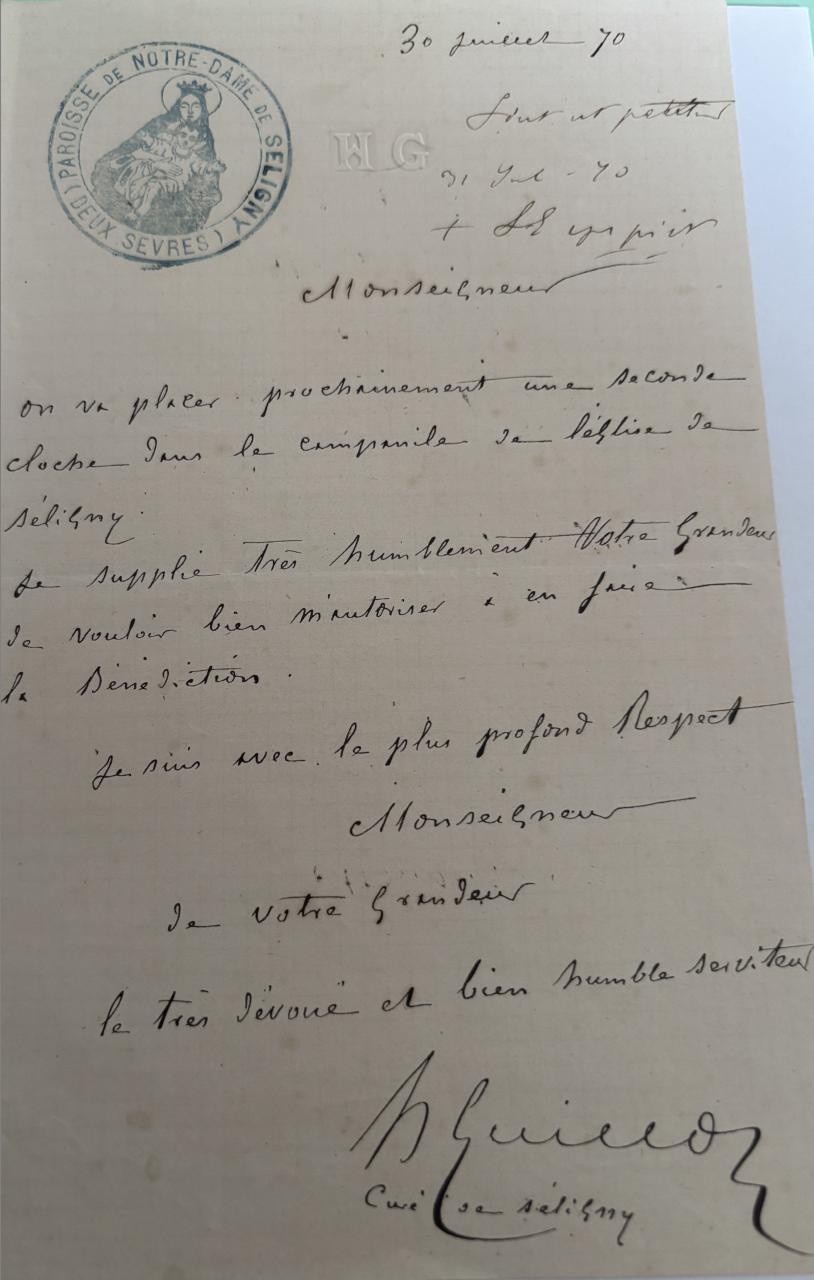 30 juillet 70
PAROISSE DE NOTRE-DAME DE SELIGNY
(DEUX SEVRES)
HG
Fiat ut petitur
31 Jul - 70
+
Monseigneur
on va placer prochainement une seconde
cloche dans le campanile de l'église de
séligny.
Je supplie très humblement Votre Grandeur
de vouloir bien m'autoriser à en faire
la Bénédiction.
Je suis avec le plus profond Respect
Monseigneur
de votre Grandeur
le très dévoué et bien humble serviteur
HGuillot
Curé de séligny